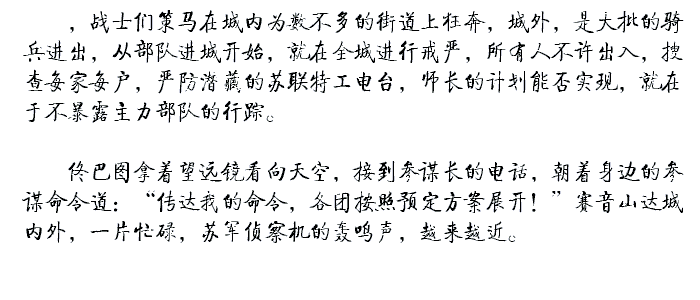 ，战士们策马在城内为数不多的街道上狂奔，城外，是大批的骑
兵进出，从部队进城开始，就在全城进行戒严，所有人不许出入，搜
查每家每户，严防潜藏的苏联特工电台，师长的计划能否实现，就在
于不暴露主力部队的行踪。
佟巴图拿着望远镜看向天空，接到参谋长的电话，朝着身边的参
谋命令道：“传达我的命令，各团按照预定方案展开！”赛音山达城
内外，一片忙碌，苏军侦察机的轰鸣声，越来越近。